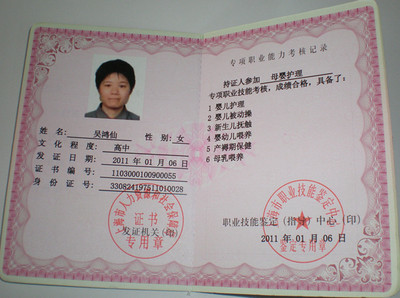 姓名: 吴鸿仙 性别: 女
文化程度: 高中
发证日期: 2011 年 01 月 06 日
证书编号: 1103000100900055
身份证号: 330824197511010028
上海市人力资源和社会保障局
证书
发证机关(印)
专用章
专项职业能力考核记录
持证人参加 母婴护理
专项职业技能考核,成绩合格,具备了:
1 婴儿护理
2 婴儿被动操
3 新生儿抚触
4 婴儿喂养
5 产褥期保健
6 母乳喂养
上海市职业技能鉴定中心
职业技能鉴定(指导)中心(印)
2011 年 01 月 06 日
鉴定专用章